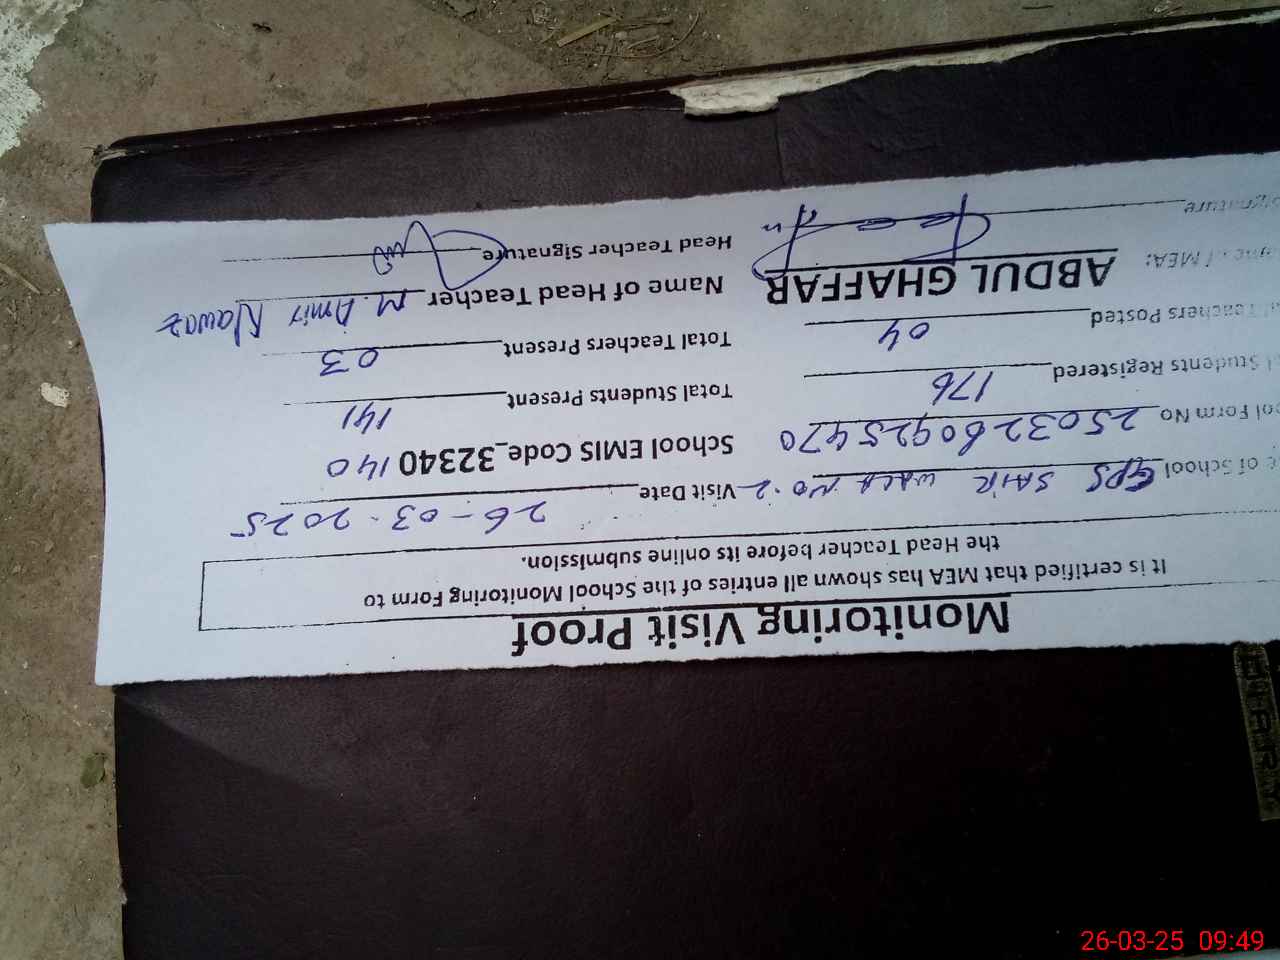 Monitoring Visit Proof
It is certified that MEA has shown all entries of the School Monitoring Form to
the Head Teacher before its online submission.
of School GPS SAIR WALA NO.2 Visit Date 26-03-2025
ool Form No 2503260925470 School EMIS Code_32340 140
l Students Registered 176 Total Students Present 141
al Teachers Posted 04 Total Teachers Present 03
me of MEA: ABDUL GHAFFAR Name of Head Teacher M. Amir Nawaz
Signature Head Teacher Signature
26-03-25 09:49